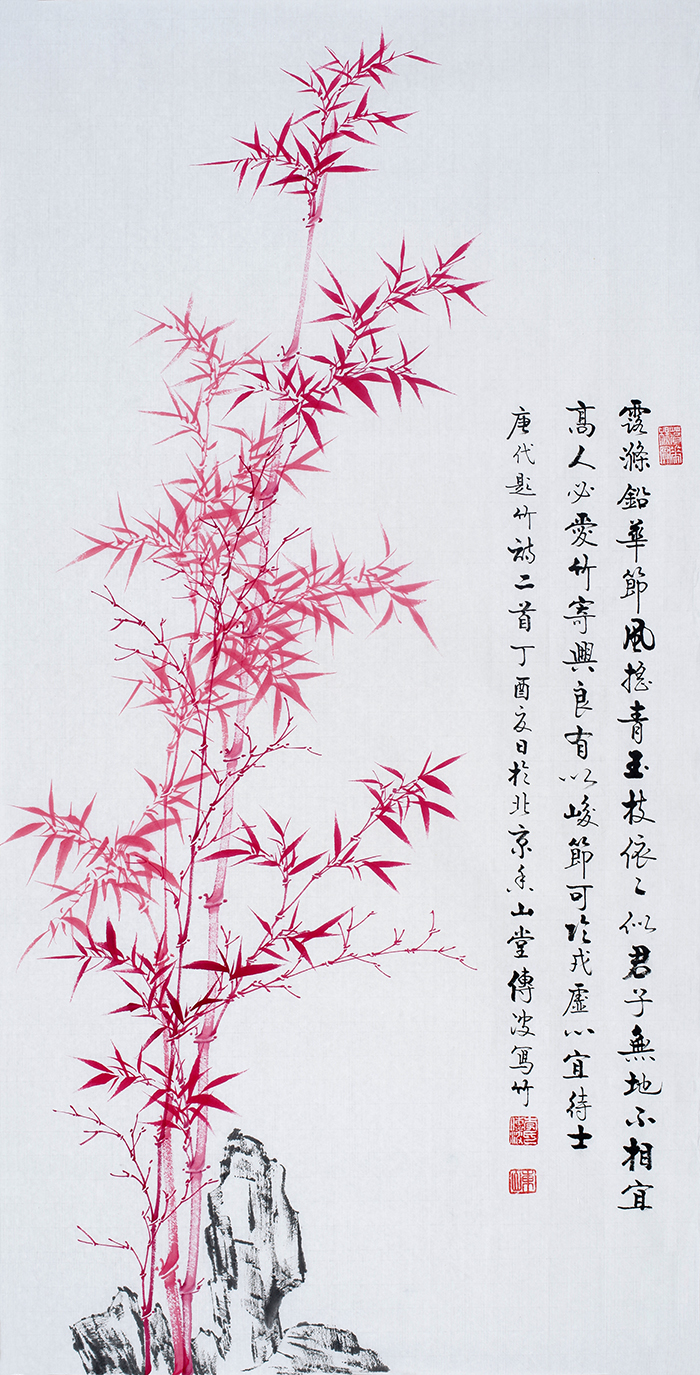 露滌鉛華節風搖青玉枝依〻似君子無地不相宜
高人必愛竹寄興良有以峻節可臨戎虛心宜待士
唐代題竹詩二首丁酉夏日於北京香山堂傳波寫竹